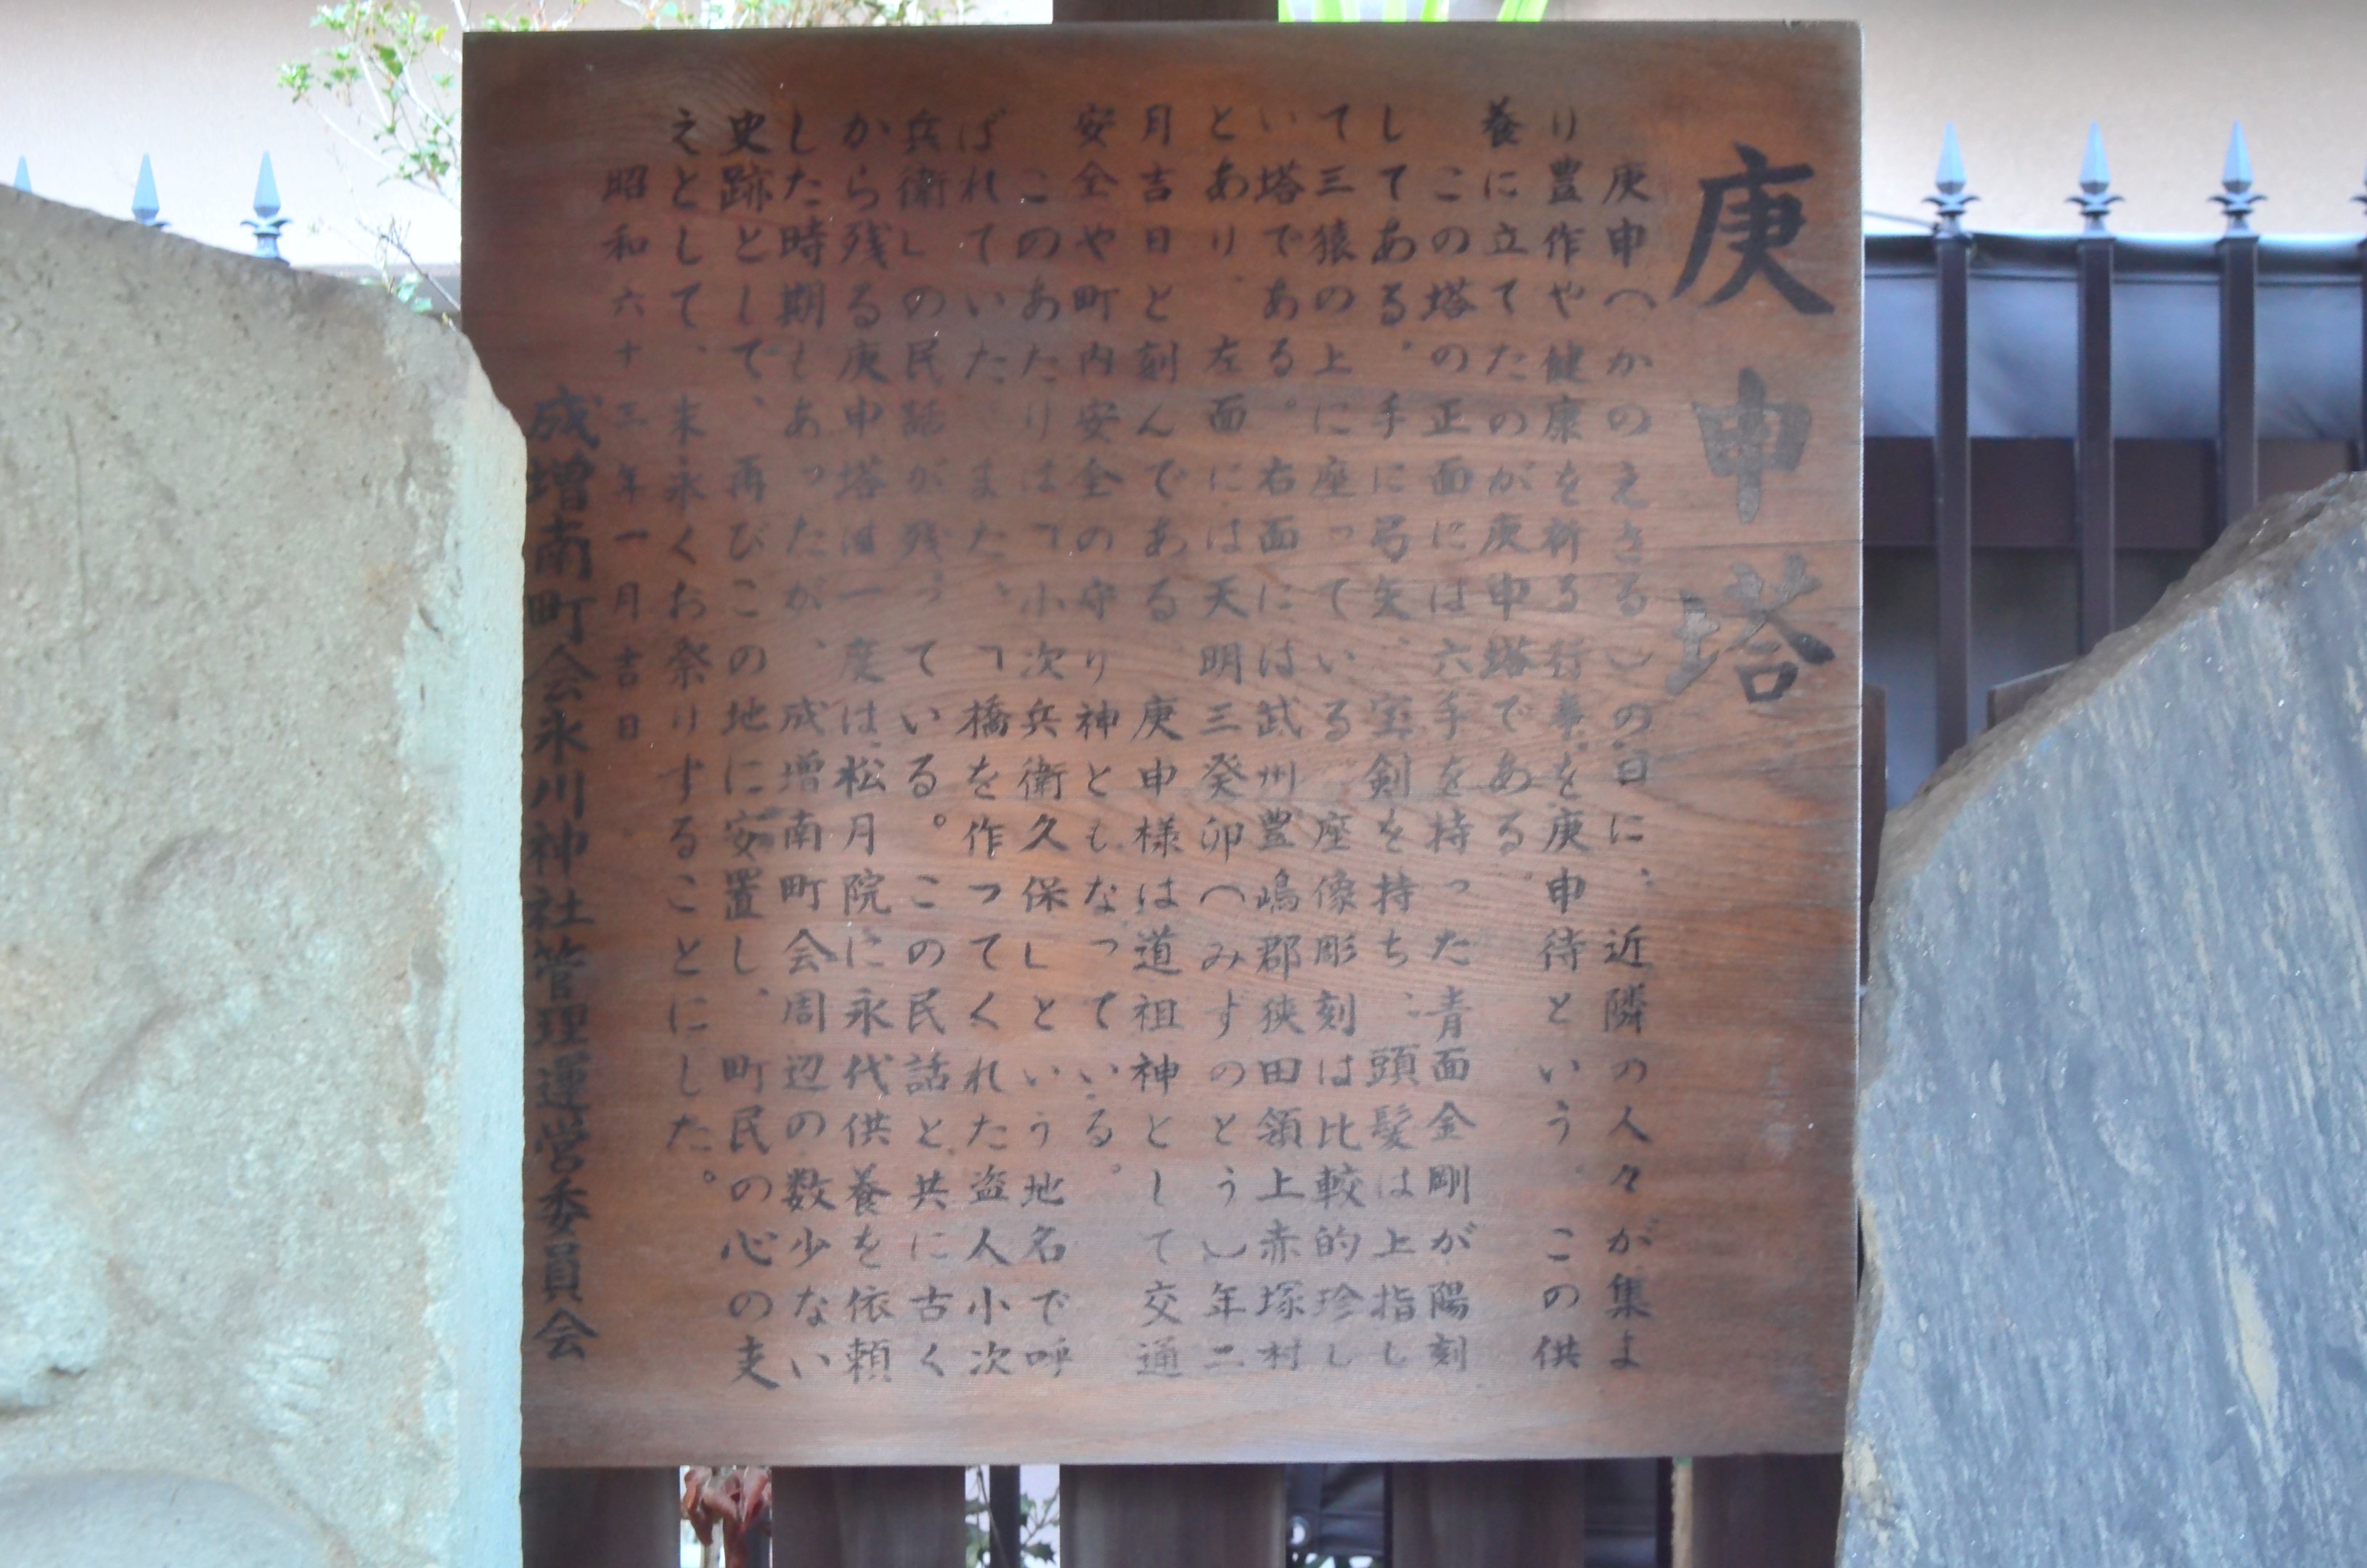 庚申塔
庚申(かのえさる)の日に、近隣の人々が集ま
り豊作や健康を祈る行事を庚申待という。この供
養に立てたのが庚申塔である。
この塔の正面には六手を持った青面金剛が陽刻
してある。手に弓矢、宝剣を持ち、頭髪は上指し
て三猿の上に座っている。座像彫刻は比較的珍し
い塔である。右面には武州豊嶋郡狭田領上赤塚村
とあり、左面には天明三癸卯(みずのとう)年二
月吉日と刻んである。庚申様は道祖神として交通
安全や町内安全の守り神ともなっている。
このあたりは「小次兵衛久保」という地名で呼
ばれていた。また、「橋を作ってくれた盗人小次
兵衛」の民話が残っている。この民話と共に古く
から残る庚申塔は一度は、松月院に永代供養を依頼
した時期もあったが、成増南町会周辺の数少ない
史跡として、再びこの地に安置し、町民の心の支
えとして、末永くお祭りすることにした。
昭和六十三年一月吉日
成増南町会氷川神社管理運営委員会